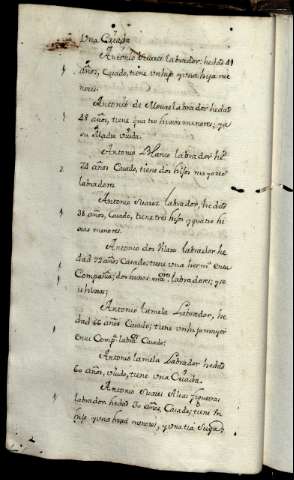 Una Criada
Antonio Suarez labrador, hedad 41
años, Casado, tiene un hijo y una hija me
nores.
Antonio de labrador hedad
48 años, tiene quatro hixos menores, y a
su Madre viuda.
Antonio Blanco labrador he
74 años Casado, tiene dos hijos mayores
labradores
Antonio Suarez labrador, hedad
38 años, Casado, tiene tres hijos y quatro hi
xas menores.
Antonio dos labrador he
dad 72 años Casado; tiene una herm.ª en su
Compañia; dos labradores; y
hixas;
Antonio lamela Labrador, he
dad 66 años Casado; tiene un hijo mayor
en su Comp.ª labr.ʳ Casado;
Antonio lamela Labrador hedad
60 años, viudo, tiene una Criada.
Antonio Suarez
labrador hedad 30 años, Casado; tiene un
hijo, y una hixa menores, y una tia Suya